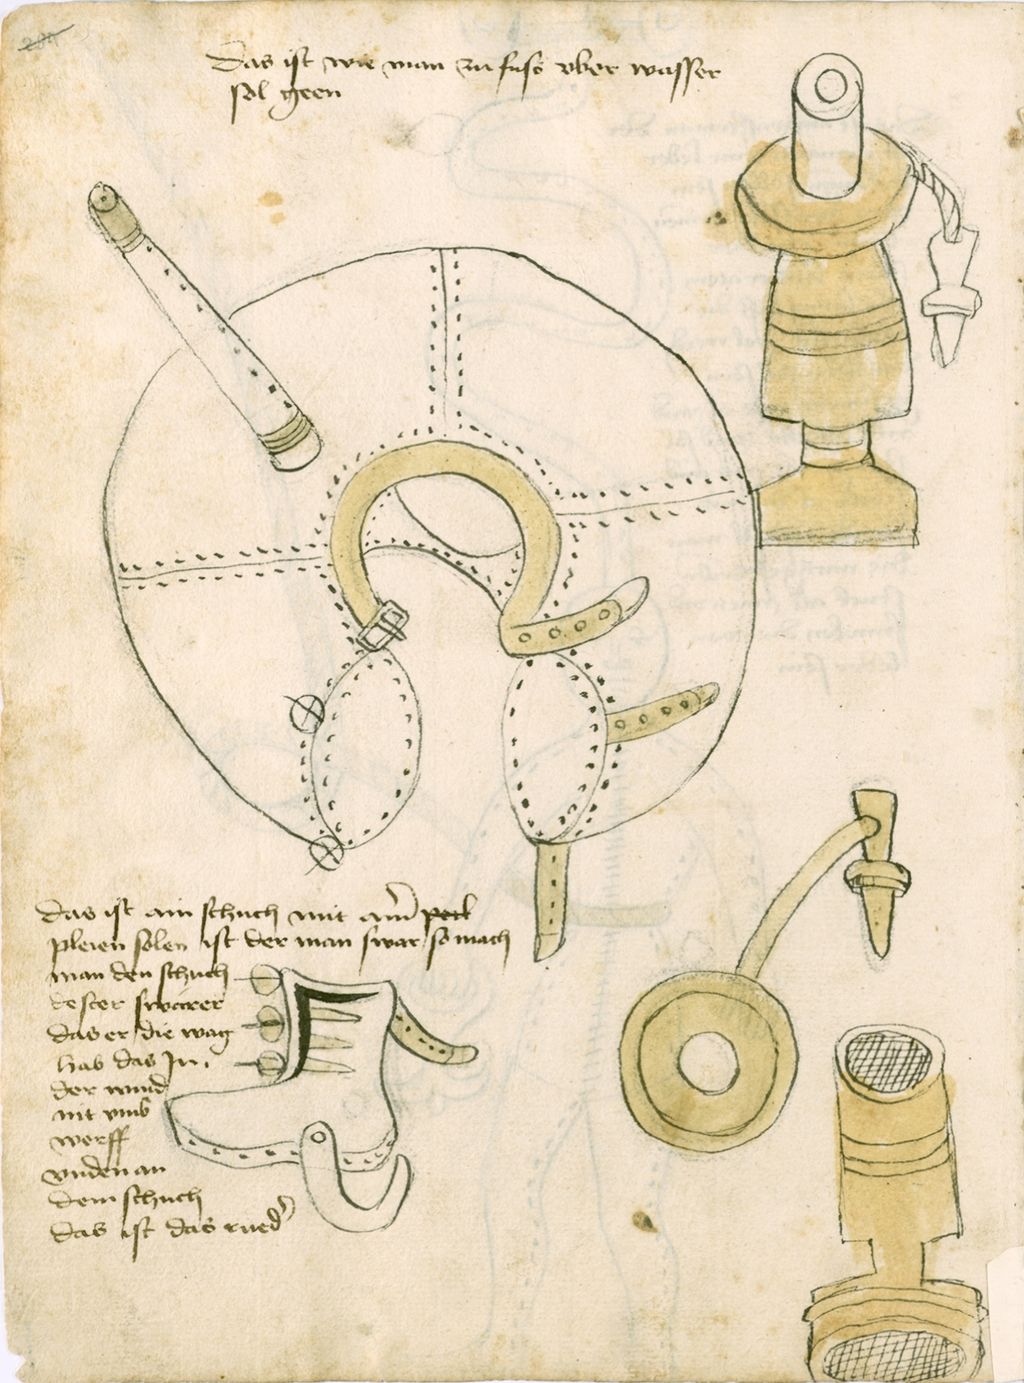 289
das ist wie man zu fuss vber wasser
sol geen
das ist ain schuch mit ainer
pleien solen ist der man swar so mach
man den schuch
dester swärer
das er die wag
hab das In
der wind
nit vmb
werff
vnden an
dem schuch
das ist das rueder